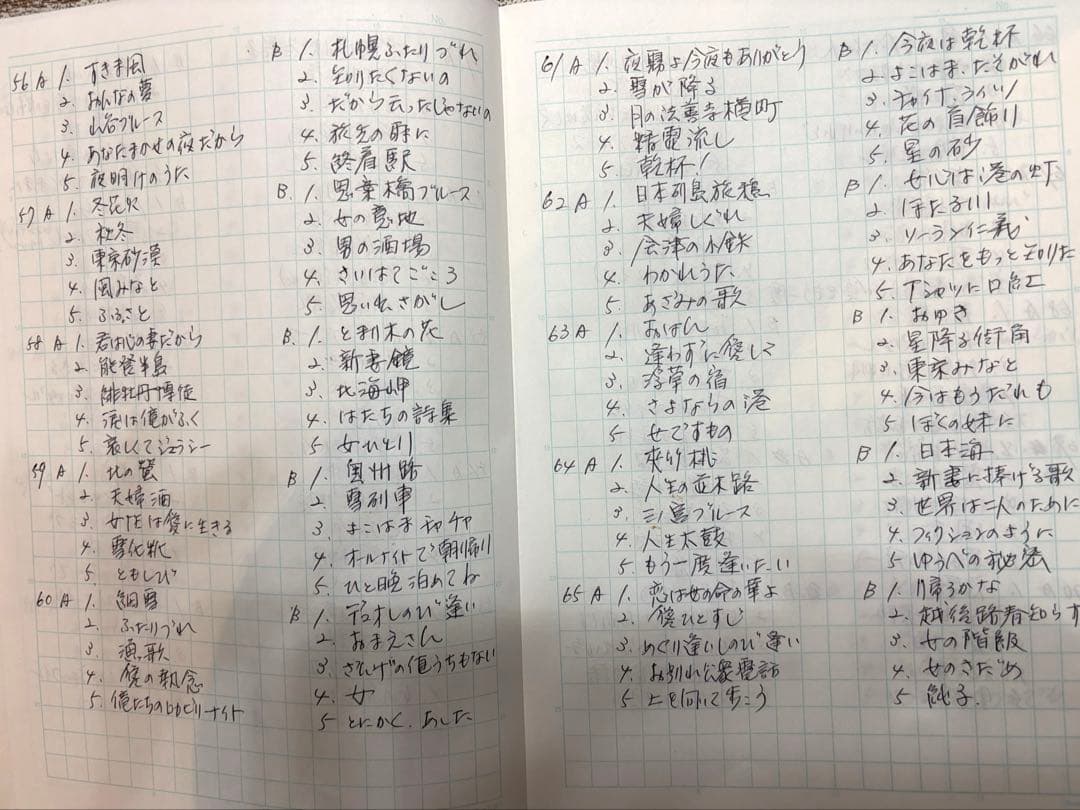 56 A 1. すきま風
2. おんなの夢
3. 山谷ブルース
4. あなたまかせの夜だから
5. 夜明けのうた
B 1. 札幌ふたりづれ
2. 知りたくないの
3. だから云ったじゃないの
4. 旅先の
5. 終着駅
57 A 1. 冬花火
2. 秋冬
3. 東京砂漠
4. 風みなと
5. ふるさと
B. 1. 思案橋ブルース
2. 女の意地
3. 男の酒場
4. さいはてごころ
5. 思い出さがし
58 A 1. 君は心の妻だから
2. 能登半島
3. 緋牡丹博徒
4. 涙は俺がふく
5. 哀しくてジェラシー
B. 1. とまり木の花
2. 新妻鏡
3. 北海岬
4. はたちの詩集
5 女ひとり
59 A 1. 北の螢
2. 夫婦酒
3. 女性は愛に生きる
4. 雪化粧
5. ともしび
B 1. 奥州路
2. 雪列車
3. よこはまチャチャ
4. オールナイトで朝帰り
5. ひと晩泊めてね
60 A 1. 細雪
2. ふたりづれ
3. 酒歌
4. 愛の執念
5. 俺たちの
B 1. デュオしのび逢い
2. おまえさん
3. さよなげの値うちもない
4. 女
5 とにかく、あした
61 A 1. 夜霧よ今夜もありがとう
2. 雪が降る
3. 月の法善寺横町
4. 精霊流し
5. 乾杯!
B 1. 今夜は乾杯
2. よこはま・たそがれ
3. チャイナ・ライツ
4. 花の首飾り
5. 星の砂
62 A 1. 日本列島旅鴉
2. 夫婦しぐれ
3. 会津の小鉄
4. わかれうた
5. あざみの歌
B 1. 女心は港の灯
2. ほたる川
3. ソーラン仁義
4. あなたをもっと知りた
5. Tシャツに口紅
63 A 1. おはん
2. 逢わずに愛して
3. 浮草の宿
4. さよならの港
5 女ですもの
B 1. おゆき
2. 星降る街角
3. 東京みなと
4. 今はもうだれも
5 ぼくの妹に
64 A 1. 夾竹桃
2. 人生の並木路
3. 三宮ブルース
4. 人生太鼓
5. もう一度逢いたい
B 1. 日本海
2. 新妻に捧げる歌
3. 世界は二人のために
4. フィクションのように
5 ゆうべの秘密
65 A 1. 恋は女の命の華よ
2. 愛ひとすじ
3. めぐり逢いしのび逢い
4. お別れ公衆電話
5 上を向いて歩こう
B 1. 帰ろかな
2. 越後路春知らず
3. 女の階級
4. 女のさだめ
5 銚子.